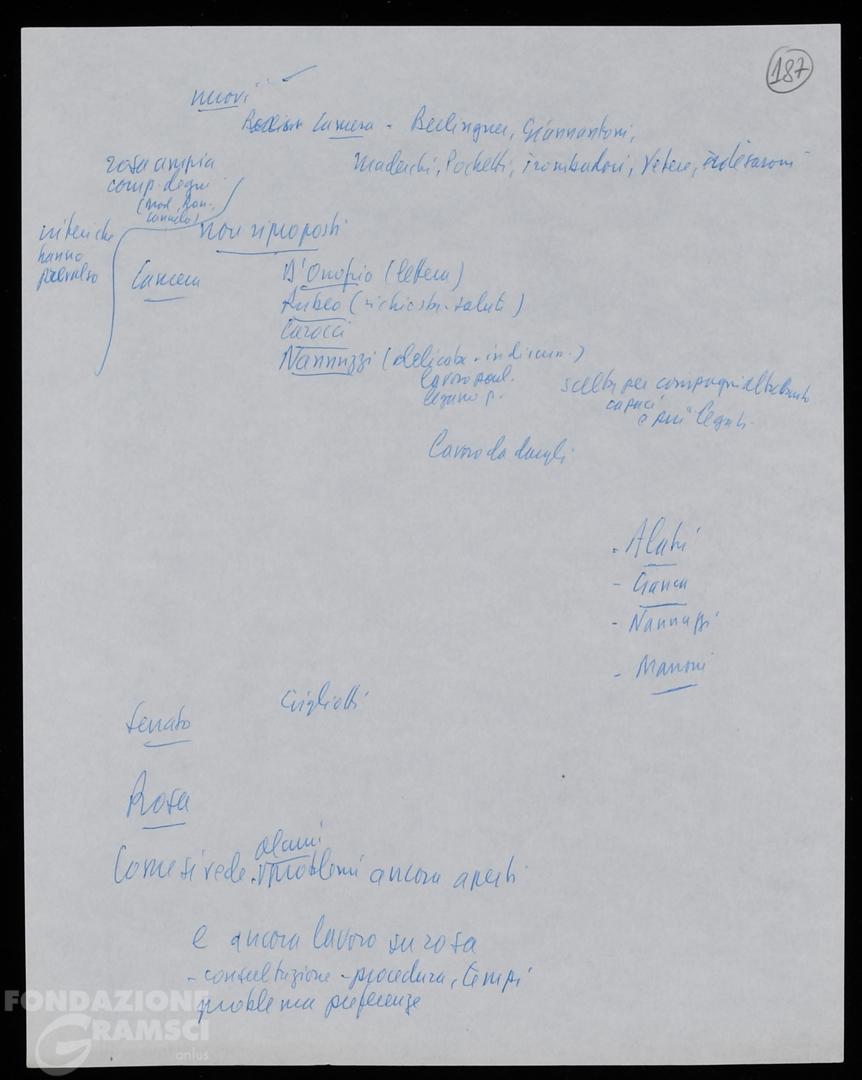 187
nuovi
Camera - Berlinguer, Giannantoni,
Maderchi, Pochetti, Trombadori, Vetere,
rosa ampia
comp. degni
(mod. Rom.
non riproposti
criteri che
hanno
prevalso
Camera
D'Onofrio (lettera)
Rubeo (richiesta - salute)
Carocci
Nannuzzi (delicata - )
lavoro parl.
legame p.
scelta per compagni altrettanto
capaci
e più legati
Lavoro da dargli
- Alatri
- Cianca
- Nannuzzi
- Mammucari
Gigliotti
Senato
Rosa
alcuni
Come si vede problemi ancora aperti
e ancora lavoro su rosa
- consultazione - procedura, tempi
problema preferenze
FONDAZIONE
GRAMSCI
onlus